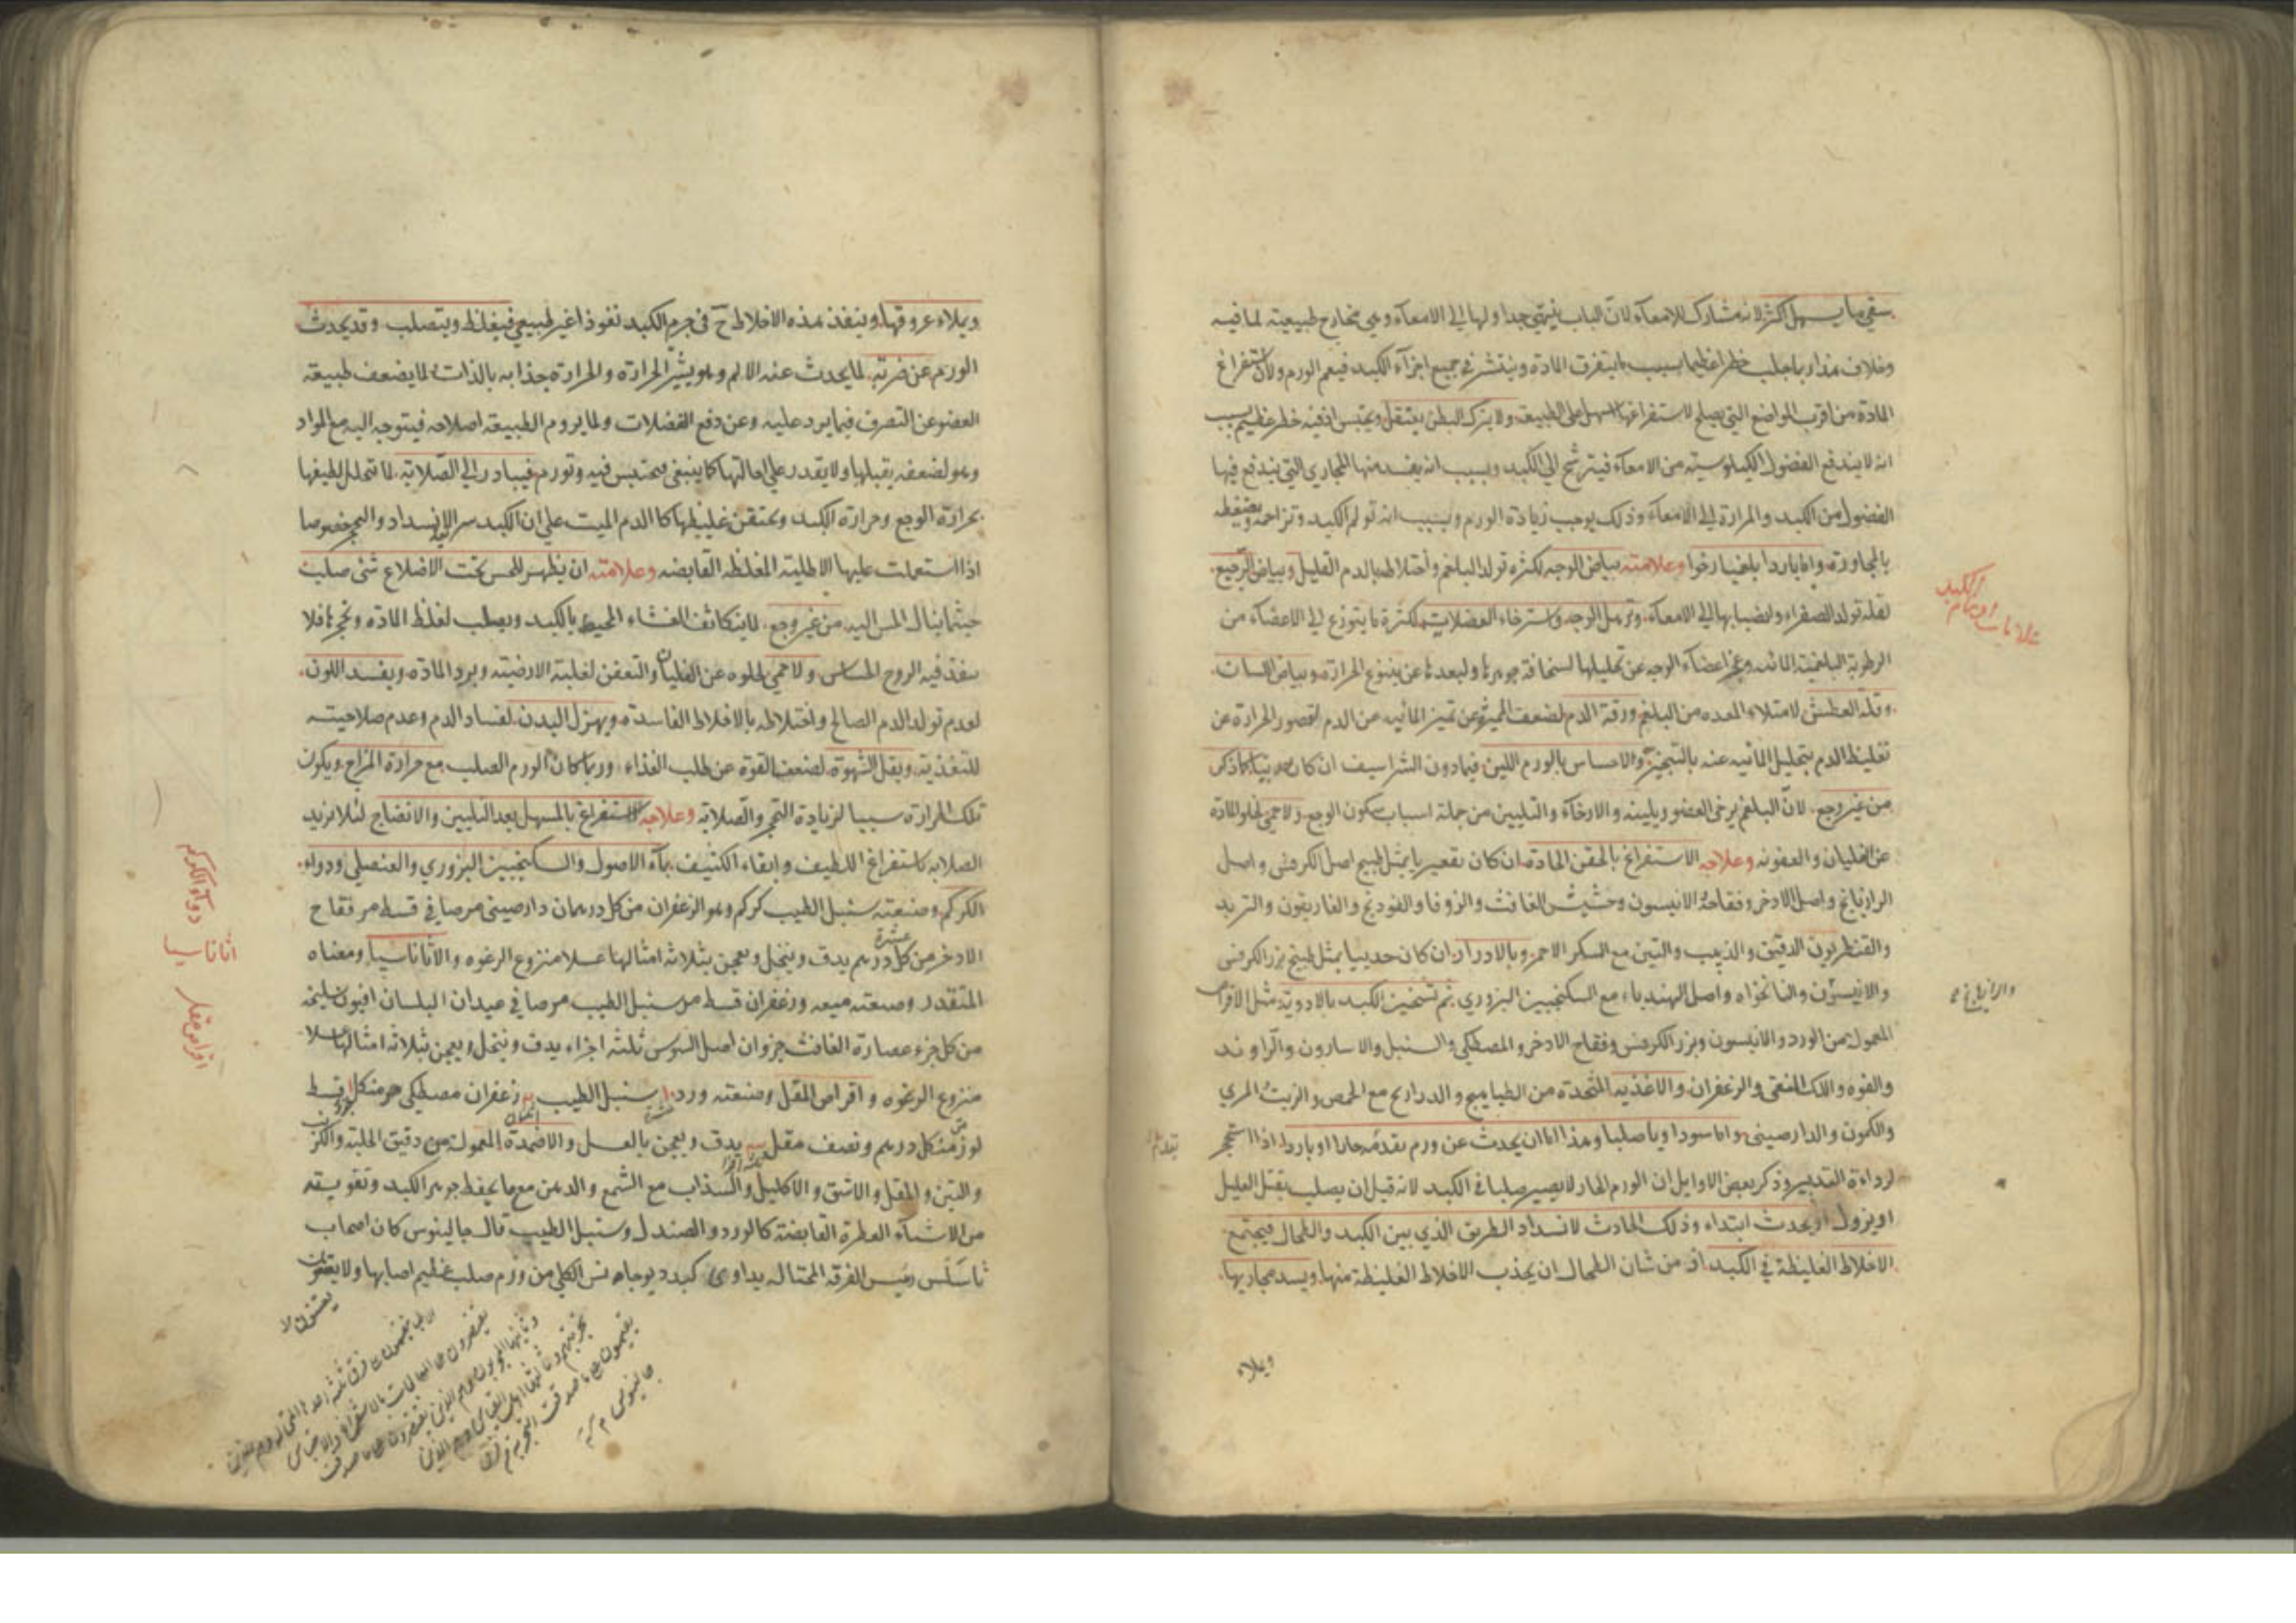 سقي ما يسهل اكثر لانه مشارك للامعآء لانّ الباب ينتهي جداولها الي الامعآء وهي مخارج طبيعية لما فيه
وخلاف هذا ربما جلب خطرا عظيما بسبب ما يتفرق المادة وينتشر في جميع اجزآء الكبد فيعم الورم ولان استفراغ
المادة من اقرب المواضع التي يصلح لاستفراغها اسهل علي الطبيعة ولا يترك البطن يعتقل ويحتبس اذ فيه خطر عظيم بسبب
انه لا يندفع الفضول الكيلوسية من الامعآء فيترشح الي الكبد وبسبب انه يفسد منها المجاري التي يندفع فيها
الفضول من الكبد والمرارة الي الامعآء وذلك يوجب زيادة الورم وبسبب انه تولم الكبد وتزاحمه ويضغطه
بالمجاورة واما باردا بلغميا رخوا وعلامته بياض الوجه لكثرة تولد البلغم واختلاطه بالدم القليل وبياض الرجيع
لقلة تولد الصفراء وانصبابها الي الامعآء وترهل الوجه واسترخاء العضلات لكثرة ما يتوزع الي الاعضآء من
الرطوبة البلغمية المائيه وعجز اعضآء الوجه عن تحليلها لسخافة جوهرها ولبعدها عن ينبوع الحرارة وبياض اللسان
وقلة العطش لامتلاء المعده من البلغم ورقة الدم لضعف المميزة عن تميز المائيه من الدم لقصور الحرارة عن
تغليظ الدم بتحليل المائيه عنه بالتبخير والاحساس بالورم اللين فيما دون الشراسيف ان كان حدبيا لما ذكر
من غير وجع لانّ البلغم يرخي العضو ويلينه والارخآء والتليين من جملة اسباب سكون الوجع ولا حمي لخلو المادة
عن الغليان والعفونه وعلاجه الاستفراغ بالحقن الحادة ان كان تقعيريا بمثل طبيخ اصل الكرفس واصل
الرازيانج واصل الاذخر وفقاحه الانيسون وحشيش الغافث والزوفا والفودنج والغاريقون والتربد
والقنطريون الدقيق والزبيب والتين مع السكر الاحمر وبالادرار ان كان حدبيا بمثل طبيخ بزر الكرفس
والانيسون والنانخواه واصل الهندباء مع السكنجبين البزوري ثم تسخين الكبد بالادوية مثل الاقراص
المعمولة من الورد والانيسون وبزر الكرفس وفقاح الاذخر والمصطكي والسنبل والاسارون والراوند
والفوه واللك المنقي والزعفران والاغذيه المتخذة من الطياهيج والدراريج مع الحمص والزيت المري
والكمون والدارصيني واما سوداويا صلبا وهذا اما ان يحدث عن ورم تقدمه حارا او باردا اذا استحجر
لرداءة التدبير وذكر بعض الاوايل ان الورم الحار لا يصير صلبا في الكبد لانه قبل ان يصلب يقتل العليل
او يزول او يحدث ابتداء وذلك الحادث لانسداد الطريق الذي بين الكبد والطحال فيجتمع
الاخلاط الغليظة في الكبد اذ من شان الطحال ان يجذب الاخلاط الغليظة منها ويسد مجاريها
ويملاء
علامات اورام الكبد
والرازيانج
ويملاء عروقها وينفذ هذه الاخلاط ح في جرم الكبد نفوذا غير طبيعي فيغلظ ويتصلب وقد يحدث
الورم عن ضربة لما يحدث عنه الالم وهو يثير الحرارة والحرارة جذابه بالذات لما يضعف طبيعة
العضو عن التصرف فيما يرد عليه وعن دفع الفضلات ولما يروم الطبيعة اصلاحه فيتوجه اليه مع المواد
وهو لضعفه يقبلها ولا يقدر علي احالتها كما ينبغي فيحتبس فيه وتورم فيبادر الي الصلابة لما تتحلل لطيفها
بحرارة الوجع وحرارة الكبد ويحتقن غليظها كالدم الميت علي ان الكبد سريع الانسداد والتحجر خصوصا
اذا استعملت عليها الاطلية المغلظه القابضه وعلامته ان يظهر للحس تحت الاضلاع شئ صلب
حيثما ينال الحس اليه من غير وجع لما يتكاثف الغشاء المحيط بالكبد ويصلب لغلظ المادة وتحجرها فلا
ينفذ فيه الروح الحساس ولا حمي لخلوه عن الغليان والتعفن لغلبة الارضية وبرد المادة ويفسد اللون
لعدم تولد الدم الصالح واختلاطه بالاخلاط الفاسدة ويهزل البدن لفساد الدم وعدم صلاحيته
للتغذية ويقل الشهوة لضعف القوة عن طلب الغذاء وربما كان الورم الصلب مع حرارة المزاج ويكون
تلك الحرارة سببا لزيادة التحجر والصلابة وعلاجه الاستفراغ بالمسهل بعد التليين والانضاج لئلا يزيد
الصلابه باستفراغ اللطيف وابقاء الكثيف بمآء الاصول والسكنجبين البزوري والعنصلي ودواء
الكركم وصنعته سنبل الطيب كركم وهو الزعفران من كل درهمان دارصيني مر صافي قسط مر فقاح
الاذخر من كل درهم يدق وينخل ويعجن بثلاثه امثالها عسلا منزوع الرغوه والاثاناسيا ومعناه
المنقذ وصنعته ميعه وزعفران قسط مر سنبل الطيب مر صافي عيدان البلسان افيون سليخه
من كل جزء عصارة الغافث جزوان اصل السوس ثلثه اجزاء يدق وينخل ويعجن بثلاثه امثالها عسلا
منزوع الرغوه واقراص المقل وصنعته ورد سنبل الطيب زعفران مصطكي من كل قسط
لوز من كل درهم ونصف مقل يدق ويعجن بالعسل والاضمدة المعمولة من دقيق الحلبة والكرنب
والتين والمقل والاشق والاكليل والسذاب مع الشمع والدهن مع ما يحفظ جوهر الكبد وتقويته
من الاشيآء العطرة القابضة كالورد والصندل وسنبل الطيب قال جالينوس كان اصحاب
ثاسلس رئيس الفرقه المحتاله يداوي كبد من ورم صلب عظيم اصابها ولا يعتنون
دوآء الكركم
اثاناسيا
اقراص مقل